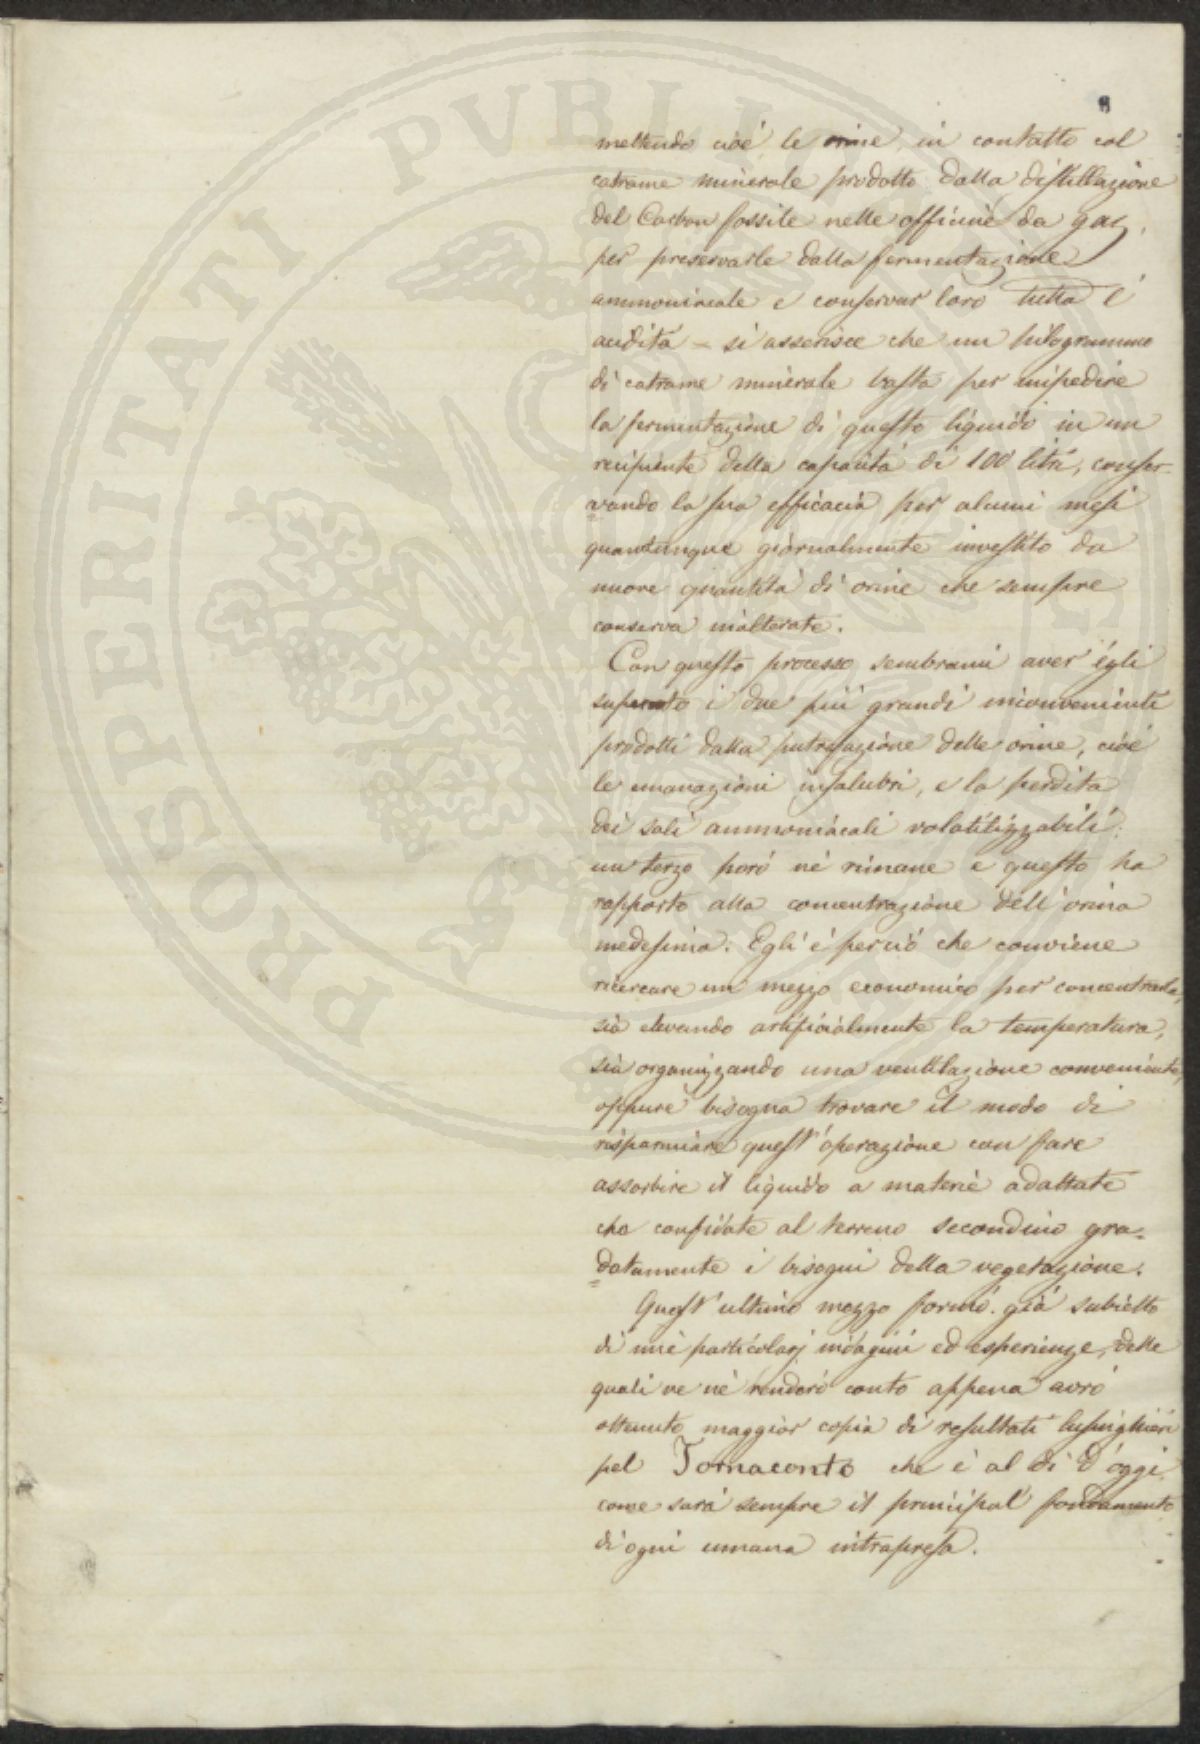 8
mettendo cioé, le orine, in contatto col
catrame minerale prodotto dalla distillazione
del Carbon fossile nelle officine da gaz,
per preservarle dalla fermentazione
ammoniacale e conservar loro tutta l'
acidità – si asserisce che un kilogrammo
di catrame minerale basta per impedire
la fermentazione di questo liquido in un
recipiente della capacità di 100 litri, conser-
=vando la sua efficacia per alcuni mesi
quantunque giornalmente investito da
nuove quantità di orine che sempre
conserva inalterate.
Con questo processo sembrami aver egli
superato i due più grandi inconvenienti
prodotti dalla putrefazione delle orine, cioé
le emanazioni insalubri, e la perdita
dei sali ammoniacali volatilizzabili;
un terzo peró né rimane e questo ha
rapporto alla concentrazione dell'orina
medesima. Egli é perció che conviene
ricercare un mezzo economico per concentrarla,
sia elevando artificialmente la temperatura,
sia organizzando una ventilazione conveniente,
oppure bisogna trovare il modo di
risparmiare quest'operazione con fare
assorbire il liquido a materie adattate
che confidate al terreno secondino gra-
=datamente i bisogni della vegetazione.
Quest'ultimo mezzo formó già subietto
di mie particolarj indagini ed esperienze, delle
quali ve né renderó conto appena avró
ottenuto maggior copia di resultati lusinghieri
pel Tornaconto che é al dì d'oggi,
come sarà sempre il principal fondamento
di ogni umana intrapresa.
PROSPERITATI PVBLI